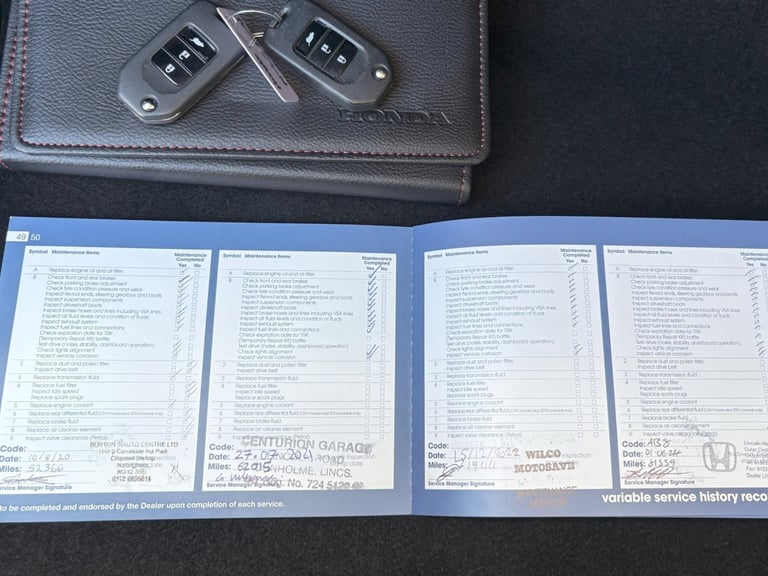 HONDA
49 50
Symbol Maintenance Items Maintenance Completed Yes No
A Replace engine oil and oil filter
B Check front and rear brakes
Check parking brake adjustment
Check tyre condition pressure and wear
Inspect tie-rod ends, steering gearbox and boots
Inspect suspension components
Inspect driveshaft boots
Inspect brake hoses and lines including VSA lines
Inspect all fluid levels and condition of fluids
Inspect exhaust system
Inspect fuel lines and connections
Check expiration date for TRK
(Temporary Repair Kit) bottle
Test drive (noise, stability, dashboard operation)
Check lights alignment
Inspect vehicle corrosion
2 Replace dust and pollen filter
Inspect drive belt
3 Replace transmission fluid
4 Replace fuel filter
Inspect idle speed
Replace spark plugs
5 Replace engine coolant
6 Replace rear differential fluid
7 Replace brake fluid
8 Replace air cleaner element
9 Inspect valve clearance (Petrol)
Code:
Date: 10/8/20
Miles: 52366
Service Manager Signature
Symbol Maintenance Items Maintenance Completed Yes No
A Replace engine oil and oil filter
B Check front and rear brakes
Check parking brake adjustment
Check tyre condition pressure and wear
Inspect tie-rod ends, steering gearbox and boots
Inspect suspension components
Inspect driveshaft boots
Inspect brake hoses and lines including VSA lines
Inspect all fluid levels and condition of fluids
Inspect exhaust system
Inspect fuel lines and connections
Check expiration date for TRK
(Temporary Repair Kit) bottle
Test drive (noise, stability, dashboard operation)
Check lights alignment
Inspect vehicle corrosion
2 Replace dust and pollen filter
Inspect drive belt
3 Replace transmission fluid
4 Replace fuel filter
Inspect idle speed
Replace spark plugs
5 Replace engine coolant
6 Replace rear differential fluid
7 Replace brake fluid
8 Replace air cleaner element
9
CENTURION GARAGE
Code:
Date: 27.07
ROAD
Miles: 62015
LINCS.
Service Manager Signature
to be completed and endorsed by the Dealer upon completion of each service.
Symbol Maintenance Items Maintenance Completed Yes No
A Replace engine oil and oil filter
B Check front and rear brakes
Check parking brake adjustment
Check tyre condition pressure and wear
Inspect tie-rod ends, steering gearbox and boots
Inspect suspension components
Inspect driveshaft boots
Inspect brake hoses and lines including VSA lines
Inspect all fluid levels and condition of fluids
Inspect exhaust system
Inspect fuel lines and connections
Check expiration date for TRK
(Temporary Repair Kit) bottle
Test drive (noise, stability, dashboard operation)
Check lights alignment
Inspect vehicle corrosion
2 Replace dust and pollen filter
Inspect drive belt
3 Replace transmission fluid
4 Replace fuel filter
Inspect idle speed
Replace spark plugs
5 Replace engine coolant
6 Replace rear differential fluid
7 Replace brake fluid
8 Replace air cleaner element
9 Inspect valve clearance (Petrol)
Code:
Date: 15/12/2022
Miles:
WILCO
MOTOSAVE
Service Manager Signature
Symbol Maintenance Items Maintenance Completed Yes No
A Replace engine oil and oil filter
B Check front and rear brakes
Check parking brake adjustment
Check tyre condition pressure and wear
Inspect tie-rod ends, steering gearbox and boots
Inspect suspension components
Inspect driveshaft boots
Inspect brake hoses and lines including VSA lines
Inspect all fluid levels and condition of fluids
Inspect exhaust system
Inspect fuel lines and connections
Check expiration date for TRK
(Temporary Repair Kit) bottle
Test drive (noise, stability, dashboard operation)
Check lights alignment
Inspect vehicle corrosion
2 Replace dust and pollen filter
Inspect drive belt
3 Replace transmission fluid
4 Replace fuel filter
Inspect idle speed
Replace spark plugs
5 Replace engine coolant
6 Replace rear differential fluid
7 Replace brake fluid
8 Replace air cleaner element
9 Inspect valve clearance (Petrol)
Code:
Date: 01.06.24
Miles: 81559
Service Manager Signature
variable service history reco